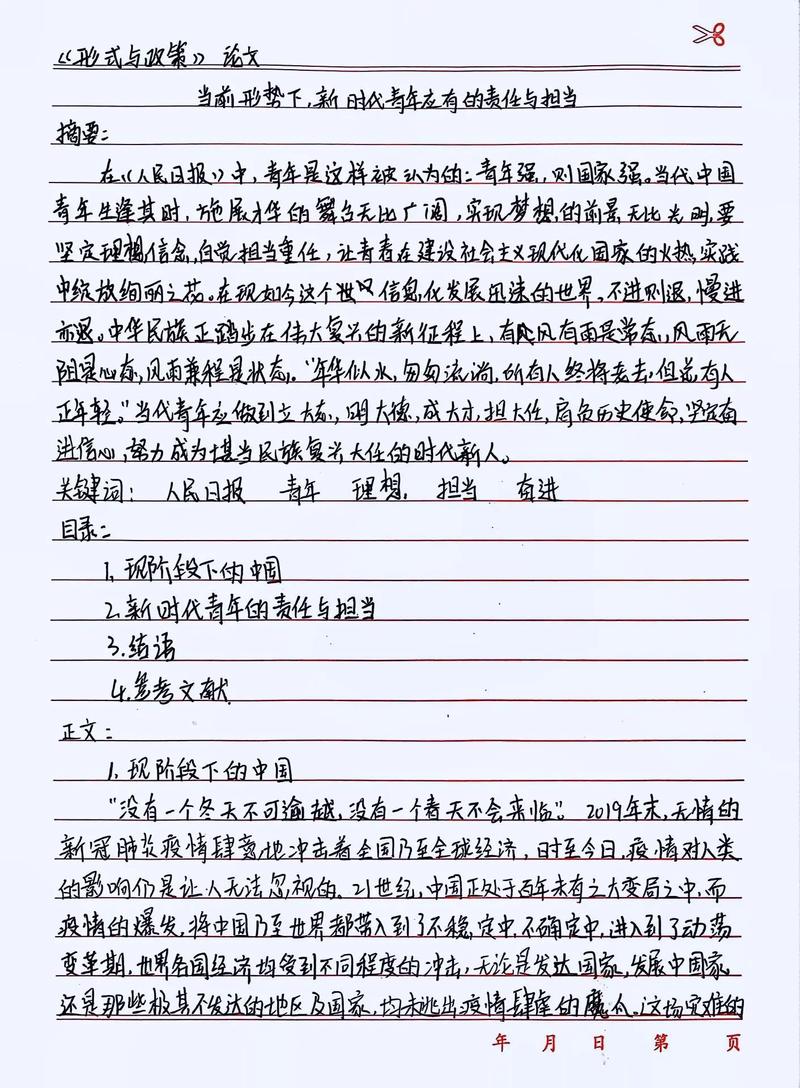 《形式与政策》论文
当前形势下，新时代青年应有的责任与担当
摘要：
在《人民日报》中，青年是这样被认为的：青年强，则国家强。当代中国
青年生逢其时，施展才华的舞台无比广阔，实现梦想的前景无比光明，要
坚定理想信念，自觉担当重任，让青春在建设社会主义现代化国家的火热实践
中绽放绚丽之花。在现如今这个世 信息化发展迅速的世界，不进则退，慢进
亦退。中华民族正踏步在伟大复兴的新征程上，有风有雨是常态，风雨无
阻是心态，风雨兼程是状态。“年华似水，匆匆流淌，所有人终将老去，但总有人
正年轻。”当代青年应做到立大志，明大德，成大才，担大任，肩负历史使命，坚定奋
进信心，努力成为堪当民族复兴大任的时代新人。
关键词： 人民日报 青年 理想 担当 奋进
目录：
1.现阶段下的中国
2.新时代青年的责任与担当
3.结语
4.参考文献
正文：
1.现阶段下的中国
“没有一个冬天不可逾越，没有一个春天不会来临”。2019年末，无情的
新冠肺炎疫情肆 地冲击着全国乃至全球经济，时至今日，疫情对人类
的影响仍是让人无法忽视的。21世纪，中国正处于百年未有之大变局之中，而
疫情的爆发，将中国乃至世界都带入到了不稳定中，不确定中，进入到了动荡
变革期，世界各国经济均受到不同程度的冲击，无论是发达国家，发展中国家
还是那些极其不发达的地区及国家，均未逃出疫情肆虐的魔爪。这场灾难的
年 月 日 第 页